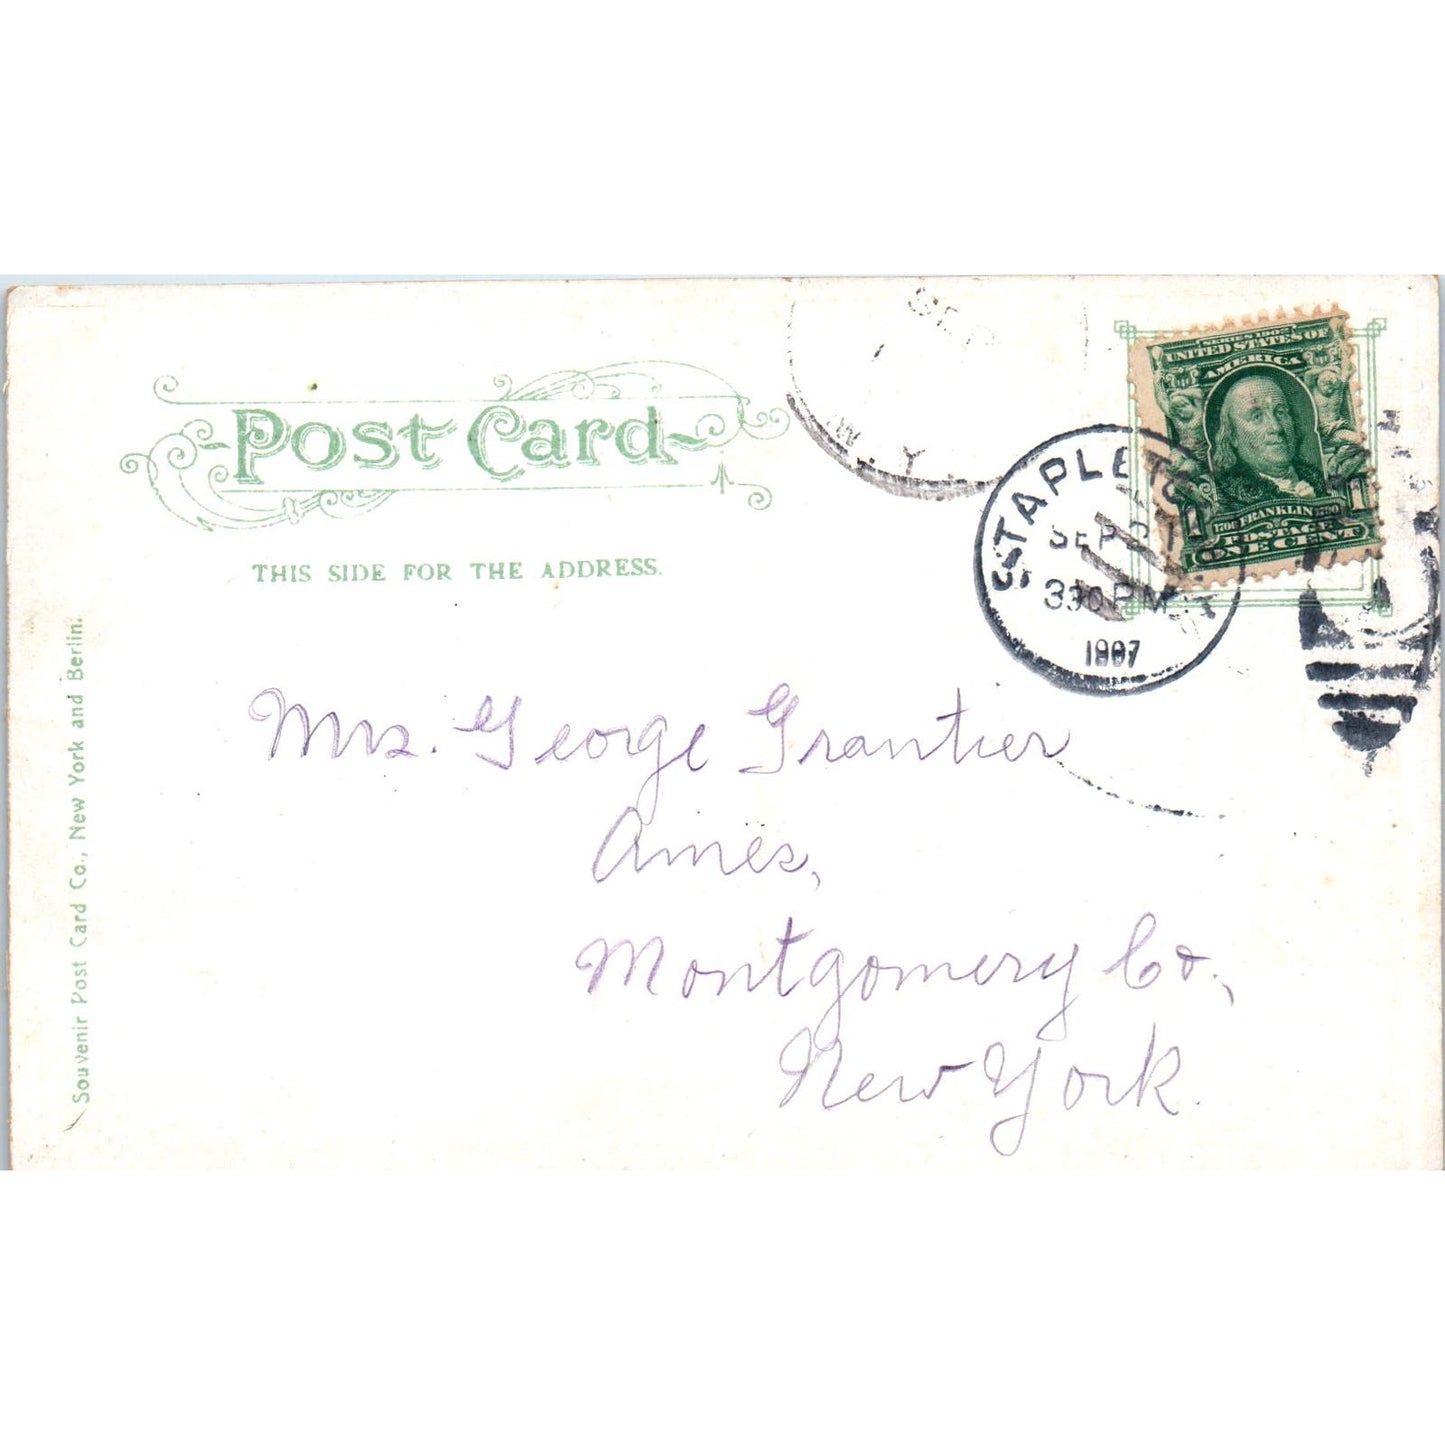 Post Card
THIS SIDE FOR THE ADDRESS.
SERIES 1902
UNITED STATES OF
AMERICA
1706 FRANKLIN 1790
POSTAGE
1 ONE CENT 1
SEP
N.Y.
STAPLETO
SEP
330 PM
1907
Mrs. George Grantier
Ames,
Montgomery Co.,
New York.
Souvenir Post Card Co., New York and Berlin.